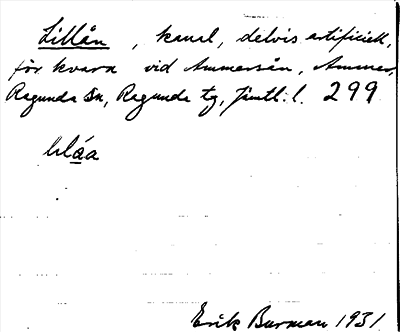 Lillån, kanal, delvis artificiell,
för kvarn vid Ammersån, Ammer,
Ragunda sn, Ragunda tg, Jämtl. l. 299
Erik Burman 1931